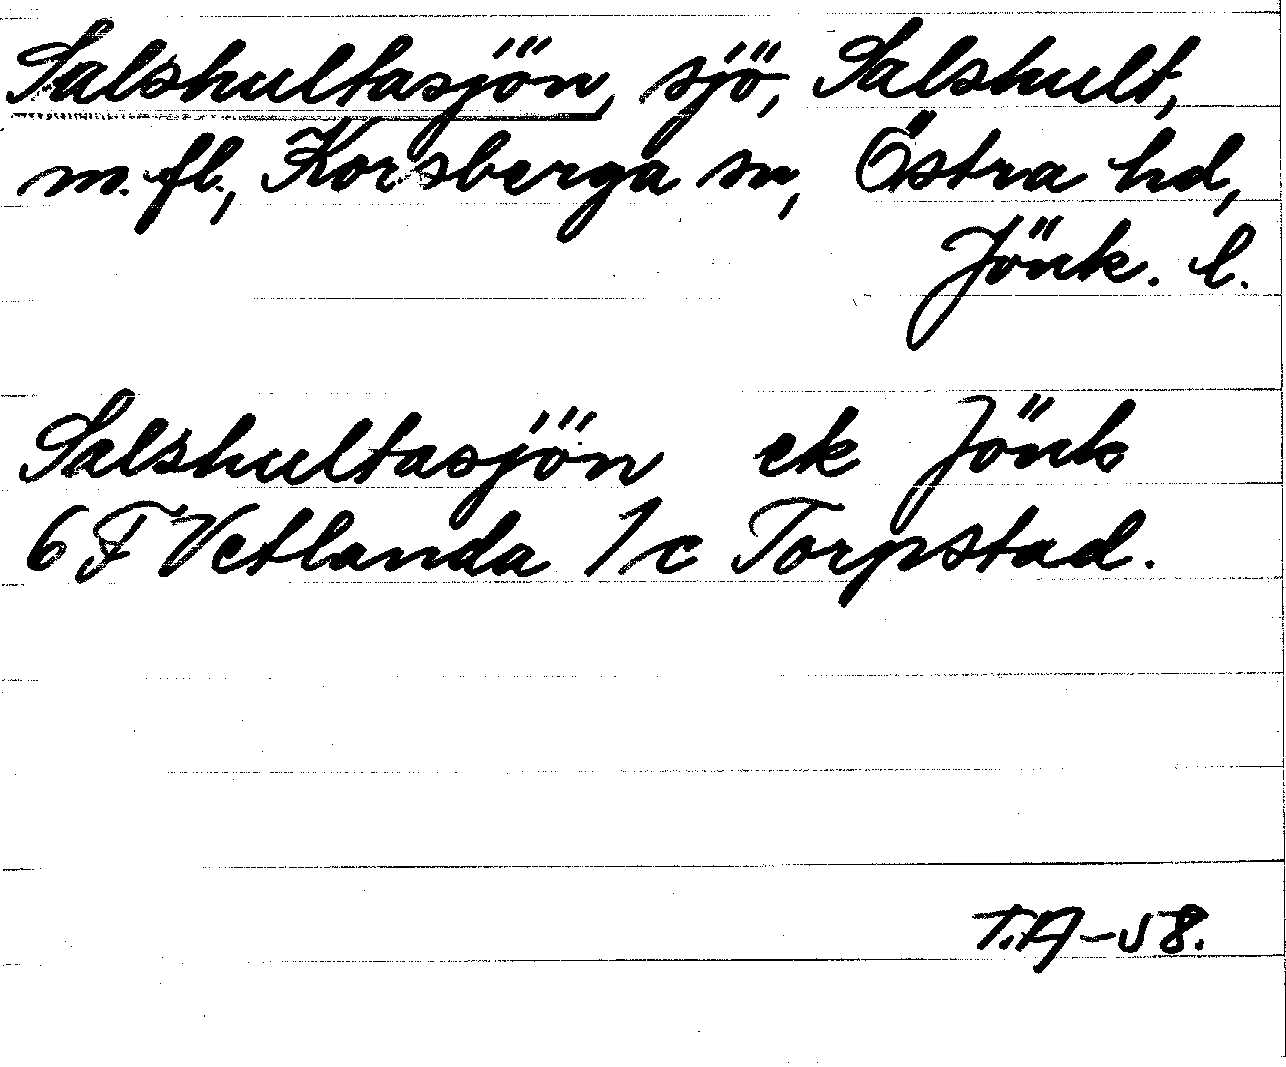 Salshultasjön, sjö, Salshult,
m. fl., Korsberga sn, Östra hd,
Jönk. l.
Salshultasjön ek Jönk
6 F Vetlanda 1 c Torpstad.
T.A-58.